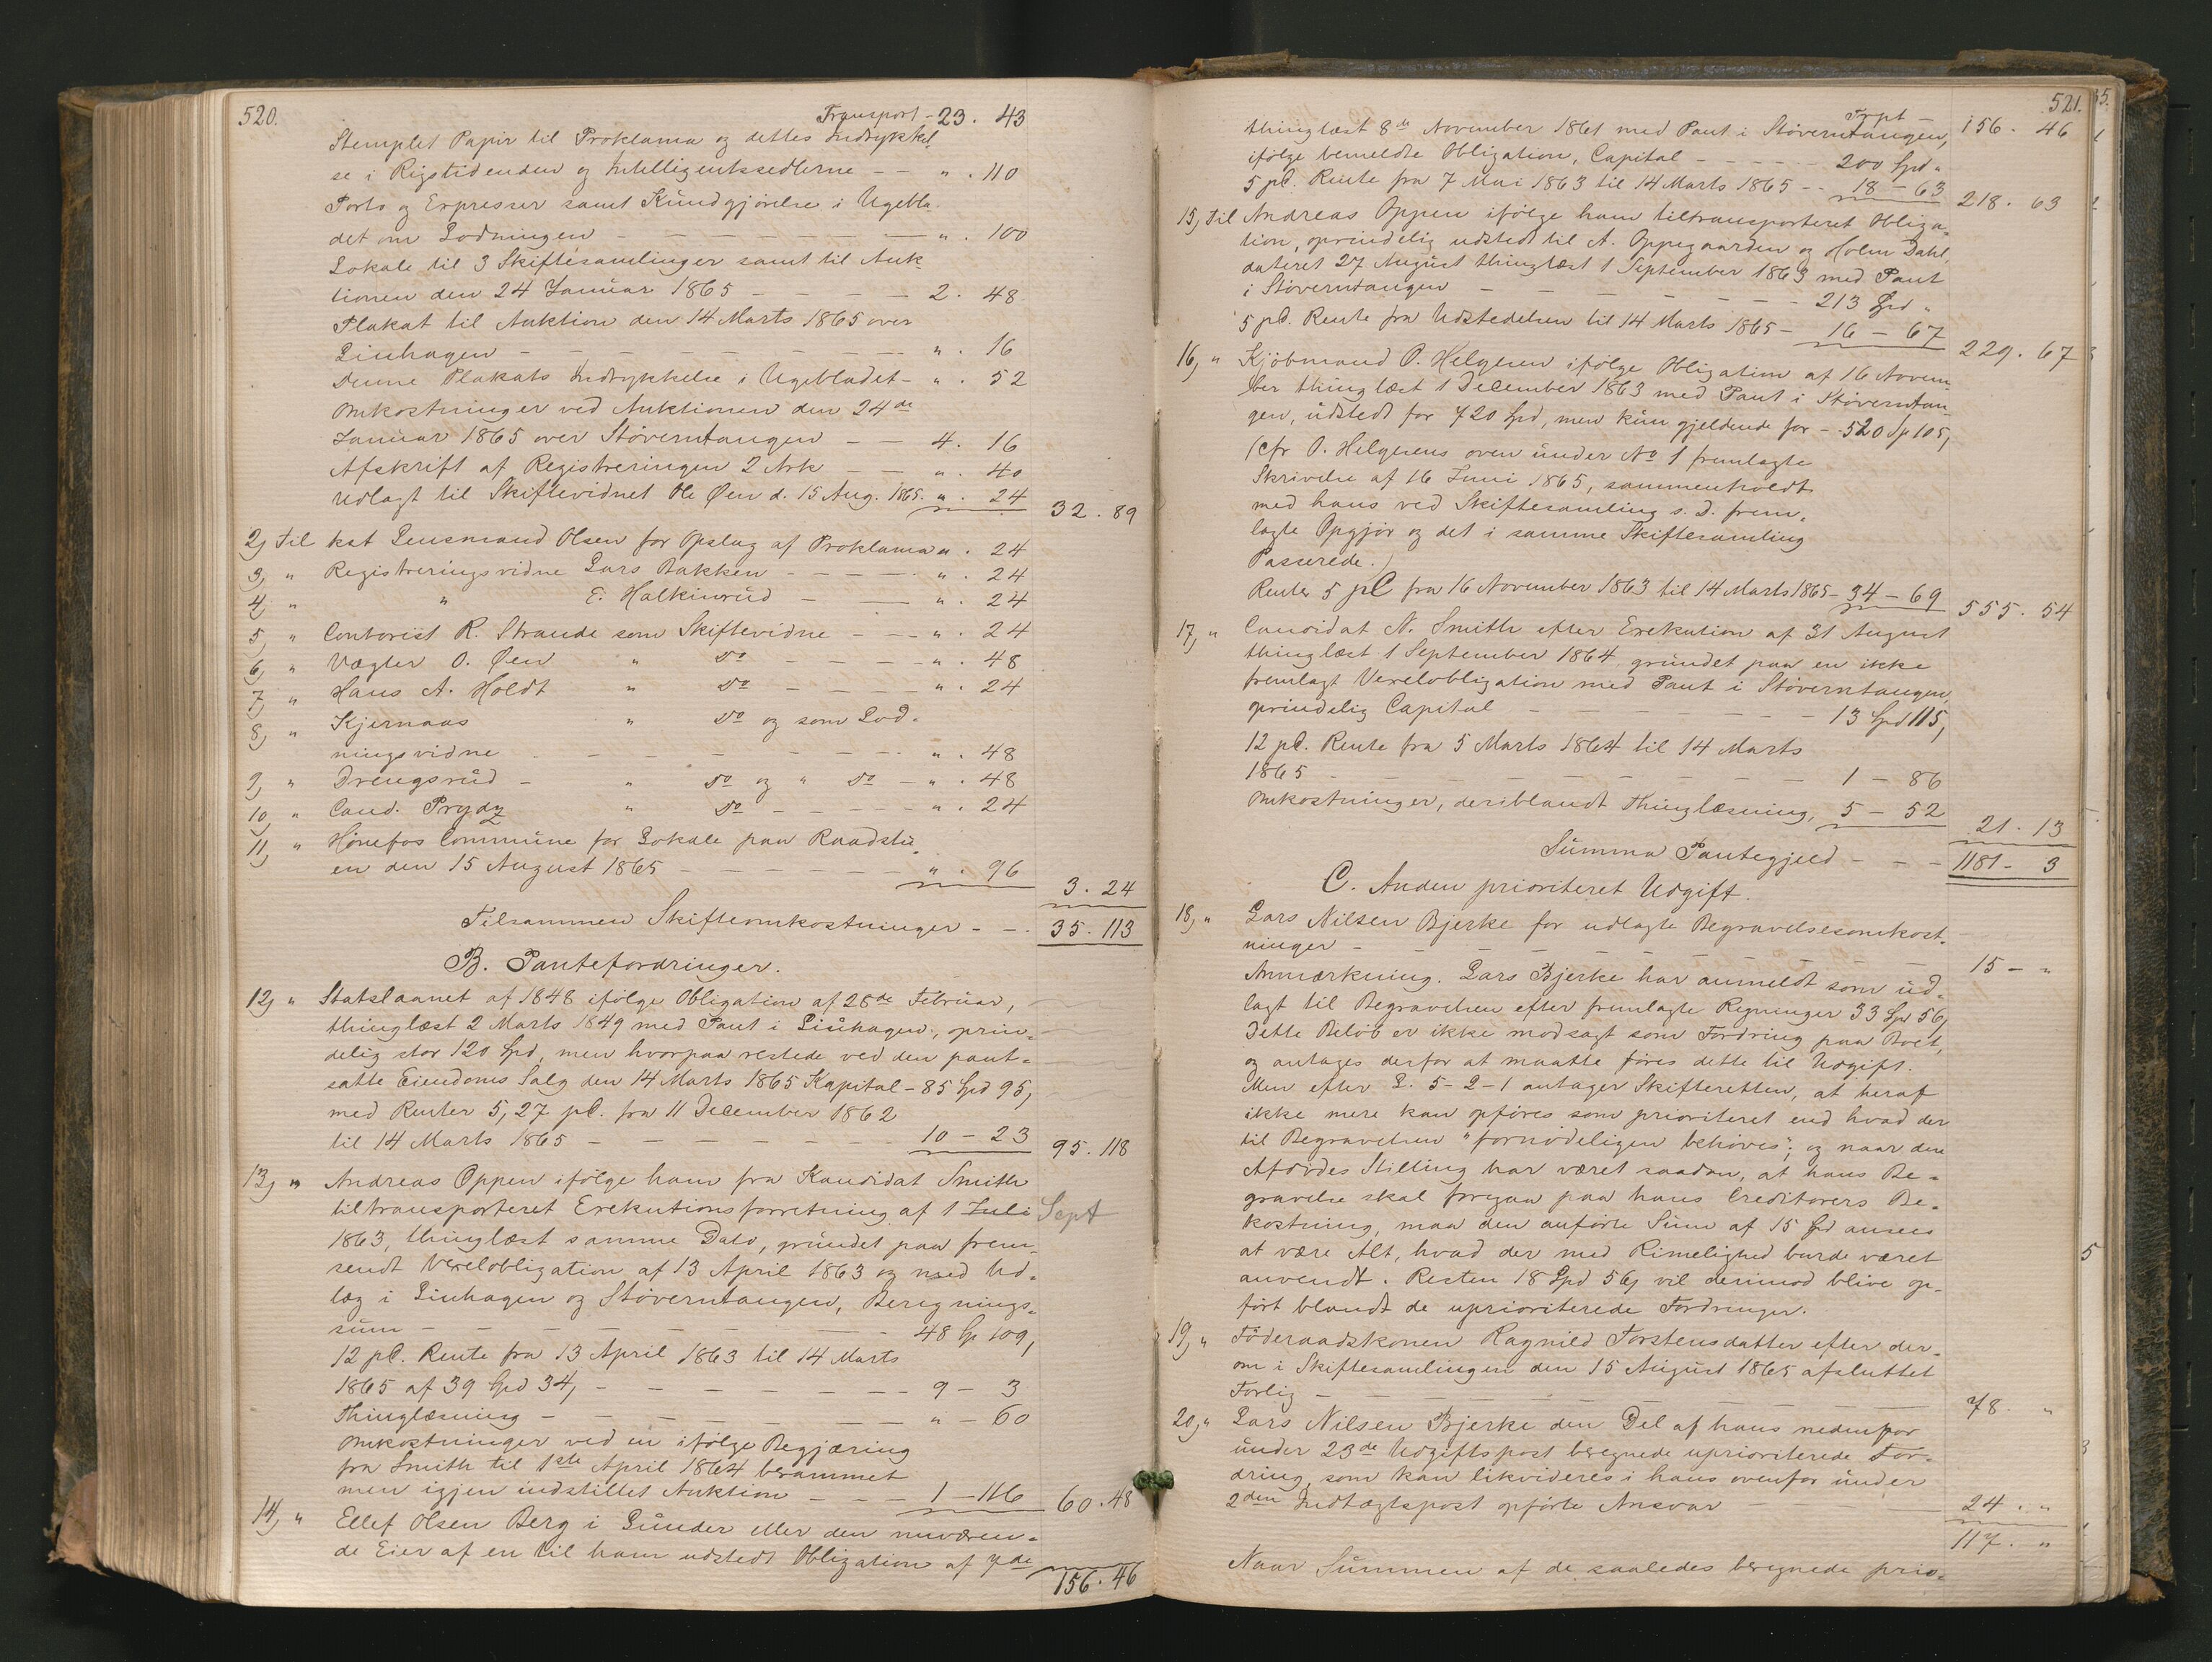 520.
Transport - 23. 43
Stemplet Papir til Proklama og dettes Indrykkel-
se i Rigstidenden og Intelligentssedlerne - - " . 110
Porto og Expresser samt Kundgjörelse i Ugebla-
det om Lodningen - - - - - " . 100
Lokale til 3 Skiftesamlinger samt til Auk-
tionen den 24 Januar 1865 - - - - 2. 48
Plakat til Auktion den 14 Marts 1865 over
Linhagen - - - - - - - " . 16
Denne Plakats Indrykkelse i Ugebladet - " . 52
Omkostninger ved Auktionen den 24de
Januar 1865 over Stöverntangen - - 4. 16
Afskrift af Registreringen 2 Ark - - " . 40
Udlagt til Skiftevidnet Ole Øen d. 15 Aug. 1865. " . 24 32. 89
2, Til kst Lensmand Olsen for Opslag af Proklama " . 24
3, " Registreringsvidne Lars Bakken - - - - " . 24
4, " " E. Halkinrud - - " . 24
5, " Contorist R. Strande som Skiftevidne - - " . 24
6, " Vægter O. Øen " Do - - - - " . 48
7, " Hans A. Holdt " Do - - - - " . 24
8, " Kjernaas " Do og som Lod-
ningsvidne - - - - - - " . 48
9, " Drengsrud - " Do og " Do - " . 48
10, " Cand. Prydz " Do - - - " . 24
11, " Hönefos Commune for Lokale paa Raadstu-
en den 15 August 1865 - - - - - - " . 96 3. 24
Tilsammen Skifteomkostninger - - 35. 113
B. Pantefordringer.
12, " Statslaanet af 1848 ifölge Obligation af 28de Februar,
thinglæst 2 Marts 1849 med Pant i Linhagen, oprin-
delig stor 120 Spd, men hvorpaa restede ved den pant-
satte Eiendoms Salg den 14 Marts 1865 Kapital - 85 Spd 95,
med Renter 5,27 pC. fra 11 December 1862
til 14 Marts 1865 - - - - - - - 10 - 23 95. 118
13, " Andreas Oppen ifölge ham fra Kandidat Smith
tiltransporteret Exekutionsforretning af 1 Juli Sept
1863, thinglæst samme Dato, grundet paa frem-
sendt Vexelobligation af 13 April 1863 og med Ud-
læg i Linhagen og Stöverntangen, Beregnings-
sum - - - - - - - 48 Sp 109,
12 pC. Rente fra 13 April 1863 til 14 Marts
1865 af 39 Spd 34, - - - - - - - 9 - 3
Thinglæsning - - - - - - - " - 60
Omkostninger ved en ifölge Begjæring
fra Smith til 1ste April 1864 berammet
men igjen indstillet Auktion - - - 1 - 116 60. 48
14, " Ellef Olsen Berg i Lunder eller den nuværen-
de Eier af en til ham udstedt Obligation af 7de
156. 46
521.
Trpt -
thinglæst 8de November 1861 med Pant i Stöverntangen, 156. 46
ifölge bemeldte Obligation, Capital - - - - - 200 Spd "
5 pC. Rente fra 7 Mai 1863 til 14 Marts 1865 - - 18 - 63 218. 63
15, Til Andreas Oppen ifölge ham tiltransporteret Obliga-
tion, oprindelig udstedt til A. Oppegaarden og Holm Dahl,
dateret 27 August thinglæst 1 September 1863 med Pant
i Stöverntangen - - - - - - - 213 Spd "
5 pC. Rente fra Udstedelsen til 14 Marts 1865 - 16 - 67 229. 67
16, " Kjöbmand O. Helgesen ifölge Obligation af 16 Novem-
ber thinglæst 1 December 1863 med Pant i Stöverntan-
gen, udstedt for 720 Spd, men kun gjeldende for - 520 Sp 105,
(cfr O. Helgesens oven under No 1 fremlagte
Skrivelse af 16 Juni 1865, sammenholdt
med hans ved Skiftesamling s. D. frem-
lagte Opgjör og det i samme Skiftesamling
Passerede.)
Renter 5 pC fra 16 November 1863 til 14 Marts 1865 - 34 - 69 555. 54
17, " Candidat N. Smith efter Exekution af 31 August
thinglæst 1 September 1864, grundet paa en ikke
fremlagt Vexelobligation med Pant i Stöverntangen,
oprindelig Capital - - - - - - 13 Spd 115,
12 pC. Rente fra 5 Marts 1864 til 14 Marts
1865 - - - - - - - - 1 - 86
Omkostninger, deriblandt Thinglæsning, 5 - 52 21. 13
Summa Pantegjeld - - - 1181 - 3
C. Anden prioriteret Udgift.
18, " Lars Nilsen Bjerke for udlagte Begravelsesomkost-
ninger - - - - - - - - 15 - "
Anmærkning. Lars Bjerke har anmeldt som ud-
lagt til Begravelsen efter fremlagte Regninger 33 Spd 56,
Dette Belöb er ikke modsagt som Fordring paa Boet,
og antages derfor at maatte föres dette til Udgift.
Men efter L. 5-2-1 antager Skifteretten, at heraf
ikke mere kan opföres som prioriteret end hvad der
til Begravelsen "fornödeligen behöves"; og naar den
Afdödes Stilling har været saadan, at hans Be-
gravelse skal foregaa paa hans Creditorers Be-
kostning, maa den anförte Sum af 15 Spd ansees
at være Alt, hvad der med Rimelighed burde været
anvendt. Resten 18 Spd 56, vil derimod blive op-
fört blandt de uprioriterede Fordringer.
19, " Föderaadskonen Ragnild Torstensdatter efter der-
om i Skiftesamlingen den 15 August 1865 afsluttet
Forlig - - - - - - - - 78. "
20, " Lars Nilsen Bjerke den Del af hans nedenfor
under 23de Udgiftspost beregnede uprioriterede For-
dring, som kan likvideres i hans ovenfor under
2den Indtægtspost opförte Ansvar 24. "
117. "
Naar Summen af de saaledes beregnede prio-